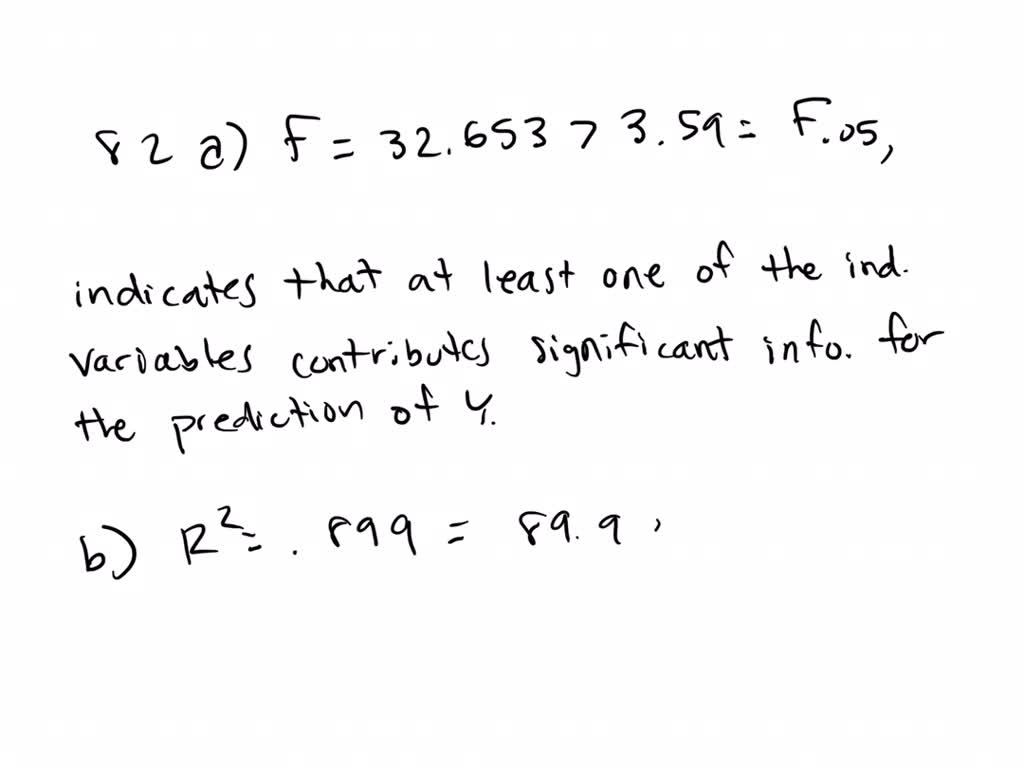 82 a) F = 32.653 > 3.59 = F.05,
indicates that at least one of the ind.
variables contributes significant info. for
the prediction of y.
b) R² = .899 = 89.9